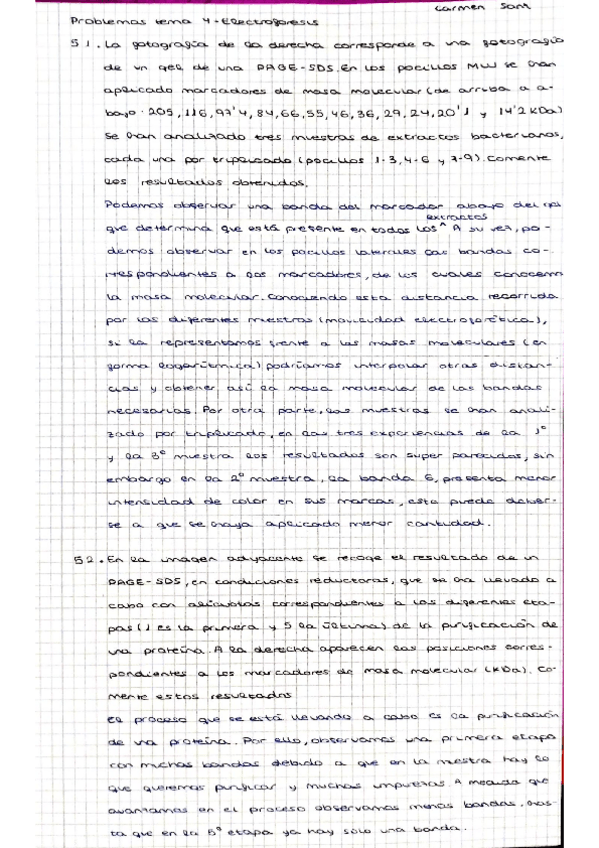 Carmen Sant
Problemas tema 4-Electroforesis
5 1. La fotografía de la derecha corresponde a una fotografía
de un gel de una PAGE-SDS. En los pocillos MW se han
aplicado marcadores de masa molecular (de arriba a a-
bajo: 205, 116, 97'4, 84, 66, 55, 46, 36, 29, 24, 20'1 y 14'2 KDa)
Se han analizado tres muestras de extractos bacterianos,
cada una por triplicado (pocillos 1-3, 4-6 y 7-9). Comente
los resultados obtenidos.
Podemos observar una banda del marcador abajo del gel
que determina que está presente en todos los ^ extractos A su vez, po-
demos observar en los pocillos laterales las bandas co-
rrespondientes a los marcadores, de los cuales conocemos
la masa molecular. Conociendo esta distancia recorrida
por las diferentes muestras (movilidad electroforética),
si la representamos frente a las masas moleculares (en
forma logarítmica) podríamos interpolar otras distan-
cias y obtener así la masa molecular de las bandas
necesarias. Por otra parte, las muestras se han anali-
zado por triplicado, en las tres experiencias de la 1º
y la 3º muestra los resultados son super parecidos, sin
embargo en la 2º muestra, la banda 6, presenta menor
intensidad de color en sus marcas, esto puede deber-
se a que se haya aplicado menor cantidad.
5 2. En la imagen adyacente se recoge el resultado de un
PAGE-SDS, en condiciones reductoras, que se ha llevado a
cabo con alícuotas correspondientes a las diferentes eta-
pas (1 es la primera y 5 la última) de la purificación de
una proteína. A la derecha aparecen las posiciones corres-
pondientes a los marcadores de masa molecular (KDa). Co-
mente estos resultados
El proceso que se está llevando a cabo es la purificación
de una proteína. Por ello, observamos una primera etapa
con muchas bandas debido a que en la mestra hay lo
que queremos purificar y muchas impurezas. A medida que
avanzamos en el proceso observamos menos bandas, has-
ta que en la 5º etapa ya hay solo una banda.